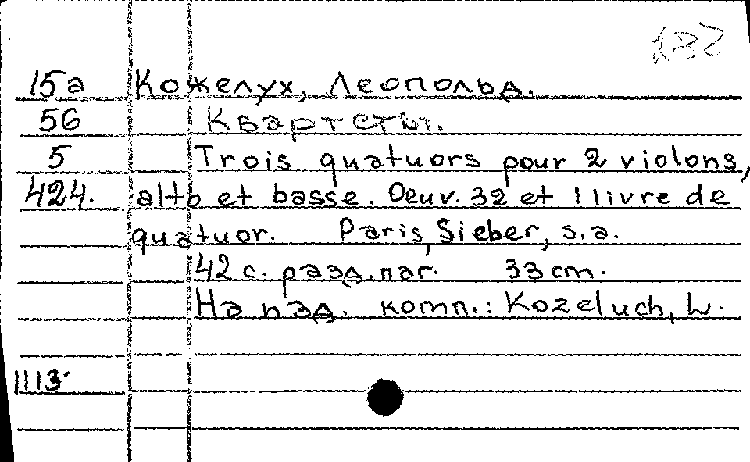 182
15а Кожелух, Леопольд.
56 Квартеты.
5 Trois quatuors pour 2 violons,
424. alto et basse. Oeuv. 32 et 1 livre de
quatuor. Paris, Sieber, s.a.
42 с. разд. паг. 33 cm.
На изд. комп.: Kozeluch, L.
1113.